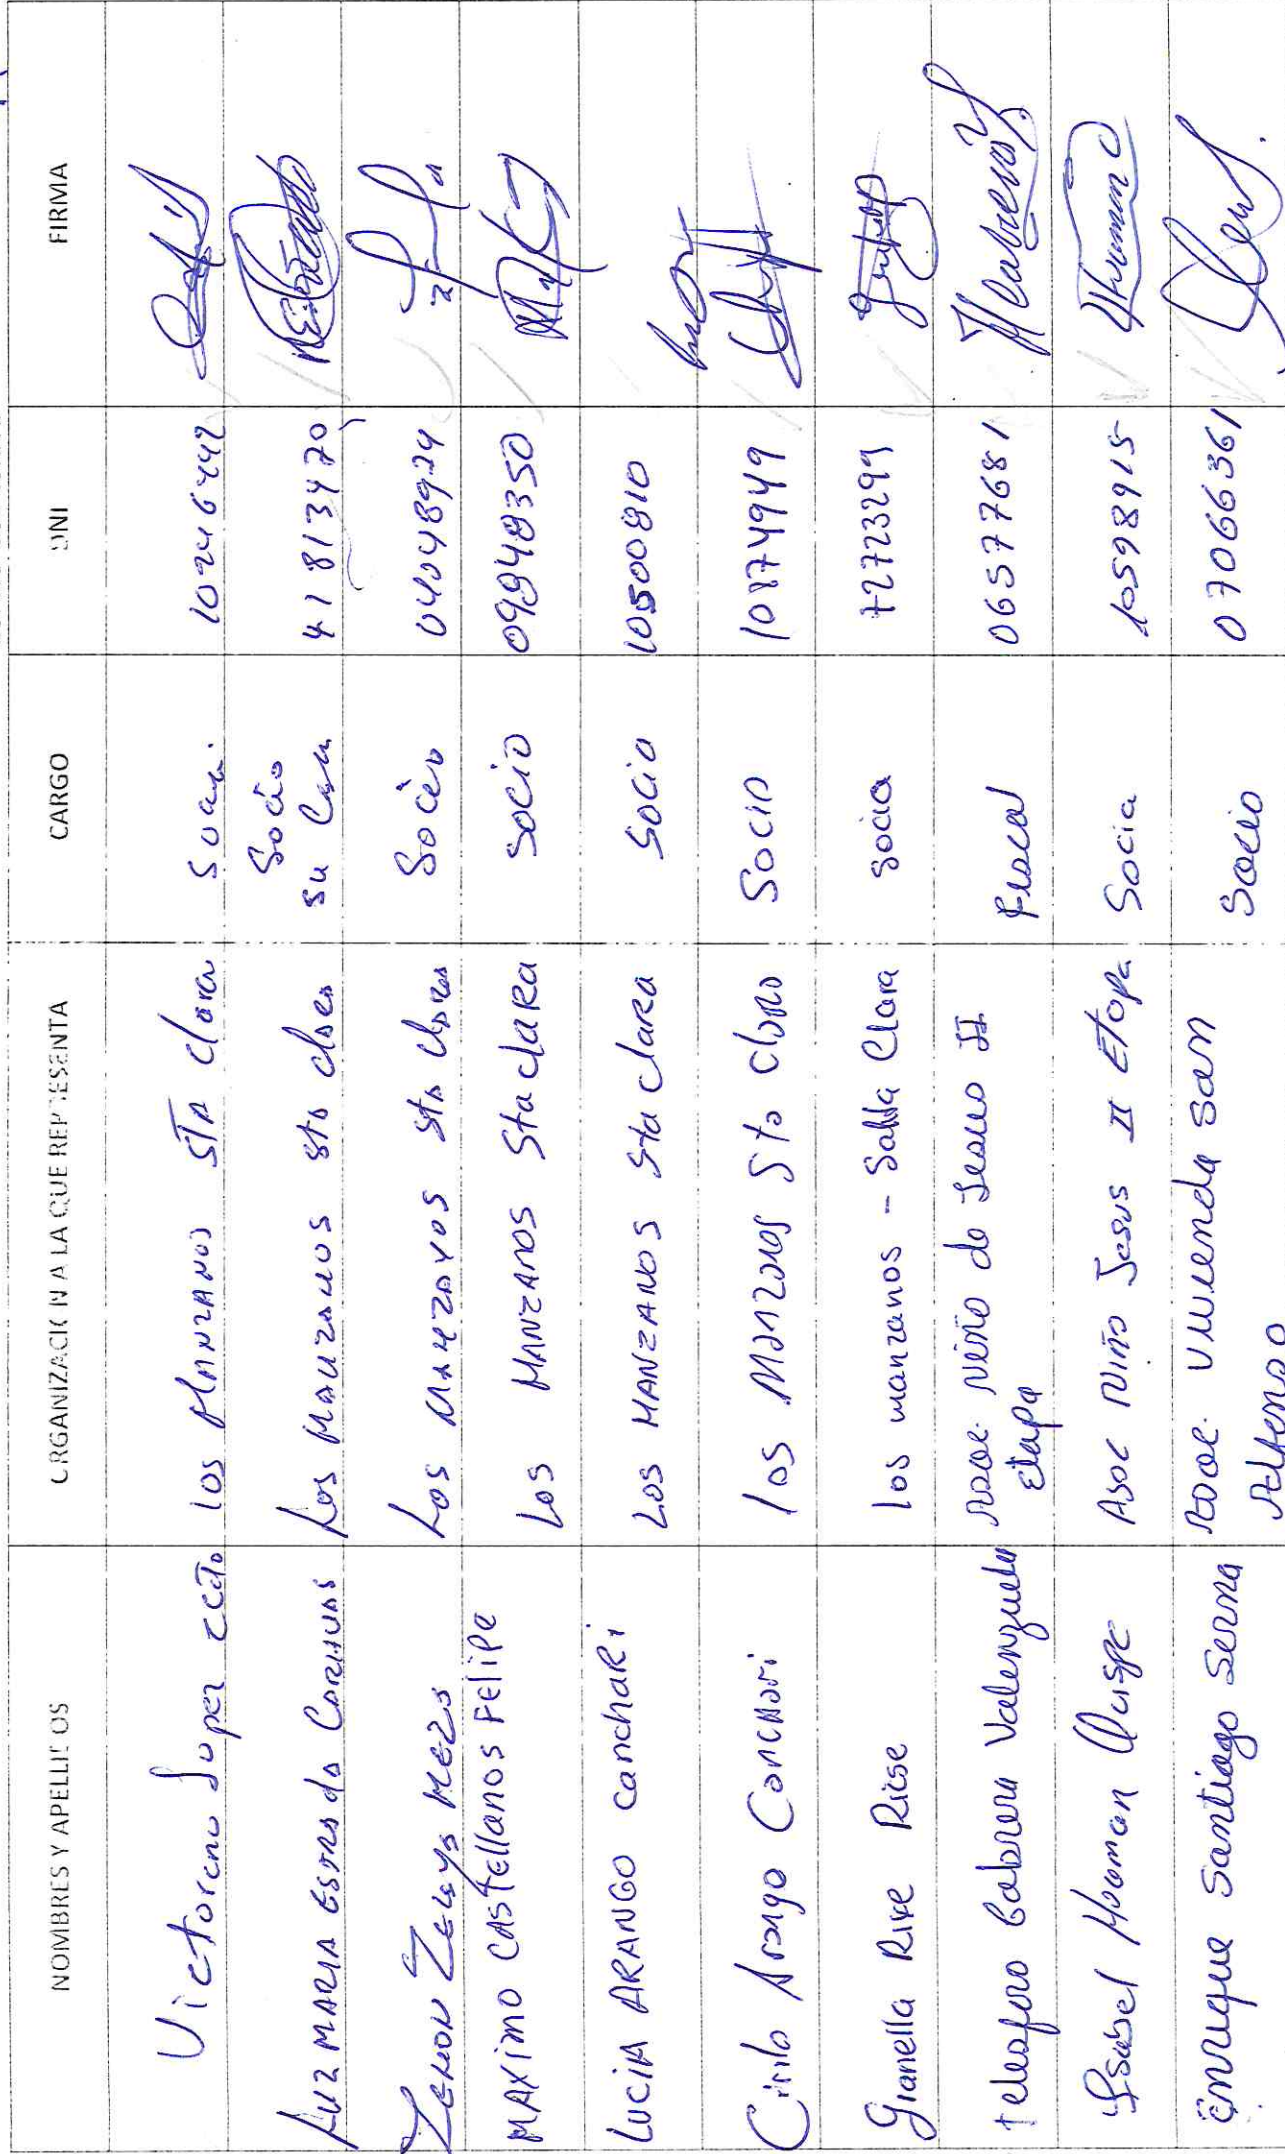 NOMBRES Y APELLIDOS ORGANIZACION A LA QUE REPRESENTA CARGO DNI FIRMA
Victoreno Lopez los MANZANOS STA Clara Socia. 10246442
LUZ MARIA Estrada Los Manzanos sta clara Socio 41813470
su Casa
ZENON Zelaya MEZA Los MANZANOS sta clara Socio 04048974
MAXIMO CASTELLANOS FELIPE LOS MANZANOS Sta claRa SOCIO 09948350
LUCIA ARANGO CanchaRi LOS MANZANOS Sta claRa SOCIO 10500810
Cirilo Arango Canchari los Manzanos Sta clara Socio 10174949
Gianella Rixe Rixse los manzanos - Santa Clara socia 72723299
Telesforo Cabrera Valenzuela Asoc. Niño de Jesus II Fiscal 06577681
Etapa
Isabel Huaman Quispe Asoc Niño Jesus II Etapa Socia 10598915
Enrrique Santiago Serna Asoc. Vivienda San Socio 07066361